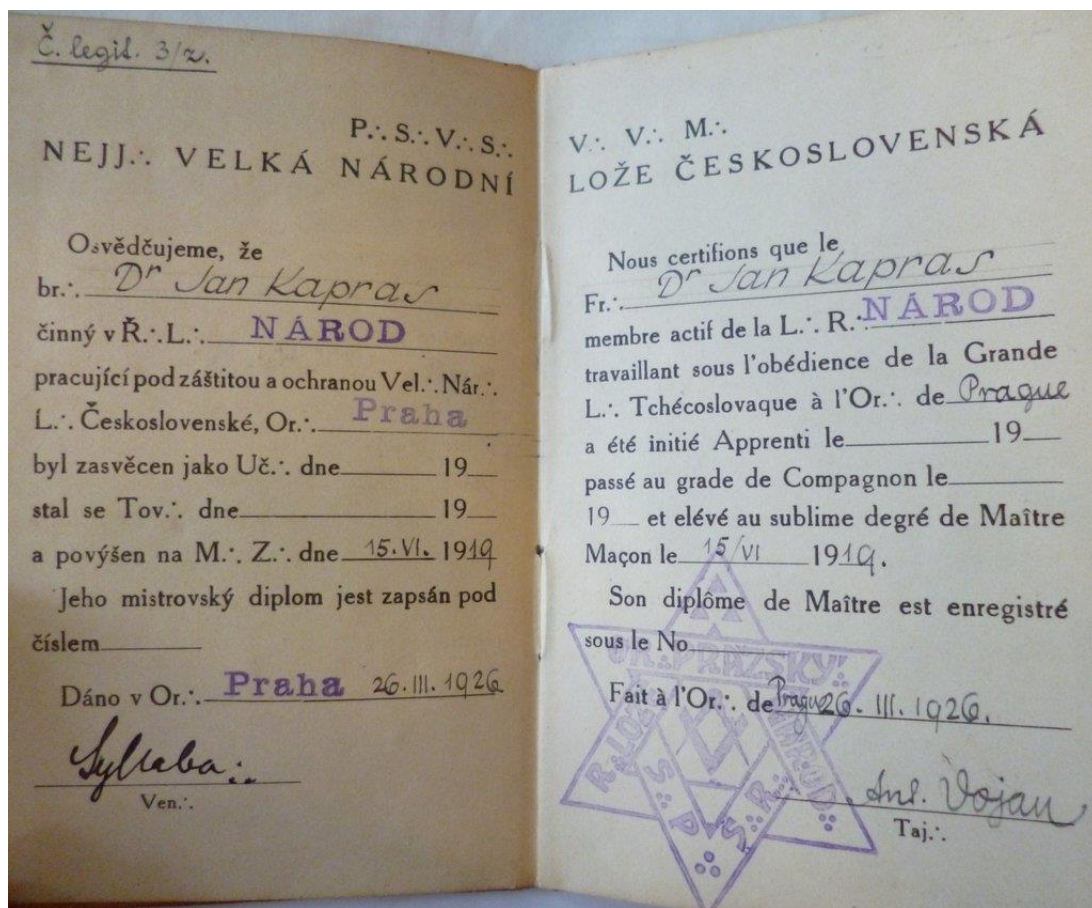 Č. legit. 3/z.
P∴ S∴ V∴ S∴
NEJJ∴ VELKÁ NÁRODNÍ
Osvědčujeme, že
br∴ Dr Jan Kapras
činný v Ř∴ L∴ NÁROD
pracující pod záštitou a ochranou Vel∴ Nár∴
L∴ Československé, Or∴ Praha
byl zasvěcen jako Uč∴ dne 19
stal se Tov∴ dne 19
a povýšen na M∴ Z∴ dne 15.VI. 1919
Jeho mistrovský diplom jest zapsán pod
číslem
Dáno v Or∴ Praha 26.III.1926
Syllaba∴
Ven∴
V∴ V∴ M∴
LOŽE ČESKOSLOVENSKÁ
Nous certifions que le
Fr∴ Dr Jan Kapras
membre actif de la L∴ R∴ NÁROD
travaillant sous l'obédience de la Grande
L∴ Tchécoslovaque à l'Or∴ de Prague
a été initié Apprenti le 19
passé au grade de Compagnon le
19 et elévé au sublime degré de Maître
Maçon le 15/VI 1919.
Son diplôme de Maître est enregistré
sous le No
Fait à l'Or∴ de Prague 26. III. 1926.
Ant. Vojan
Taj∴
OR∴ PRAŽSKÝ
NÁROD
S∴ P∴ S∴ R∴